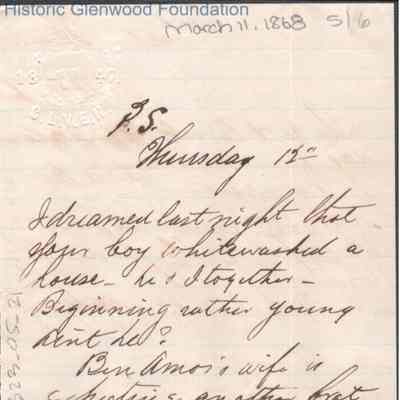 Historic Glenwood Foundation
March 11, 1868 5/6
P.S.
Thursday 12"
I dreamed last night that
your boy whitewashed a
house - he & I together -
Beginning rather young
aint he?
Ben Amos's wife is
another brat